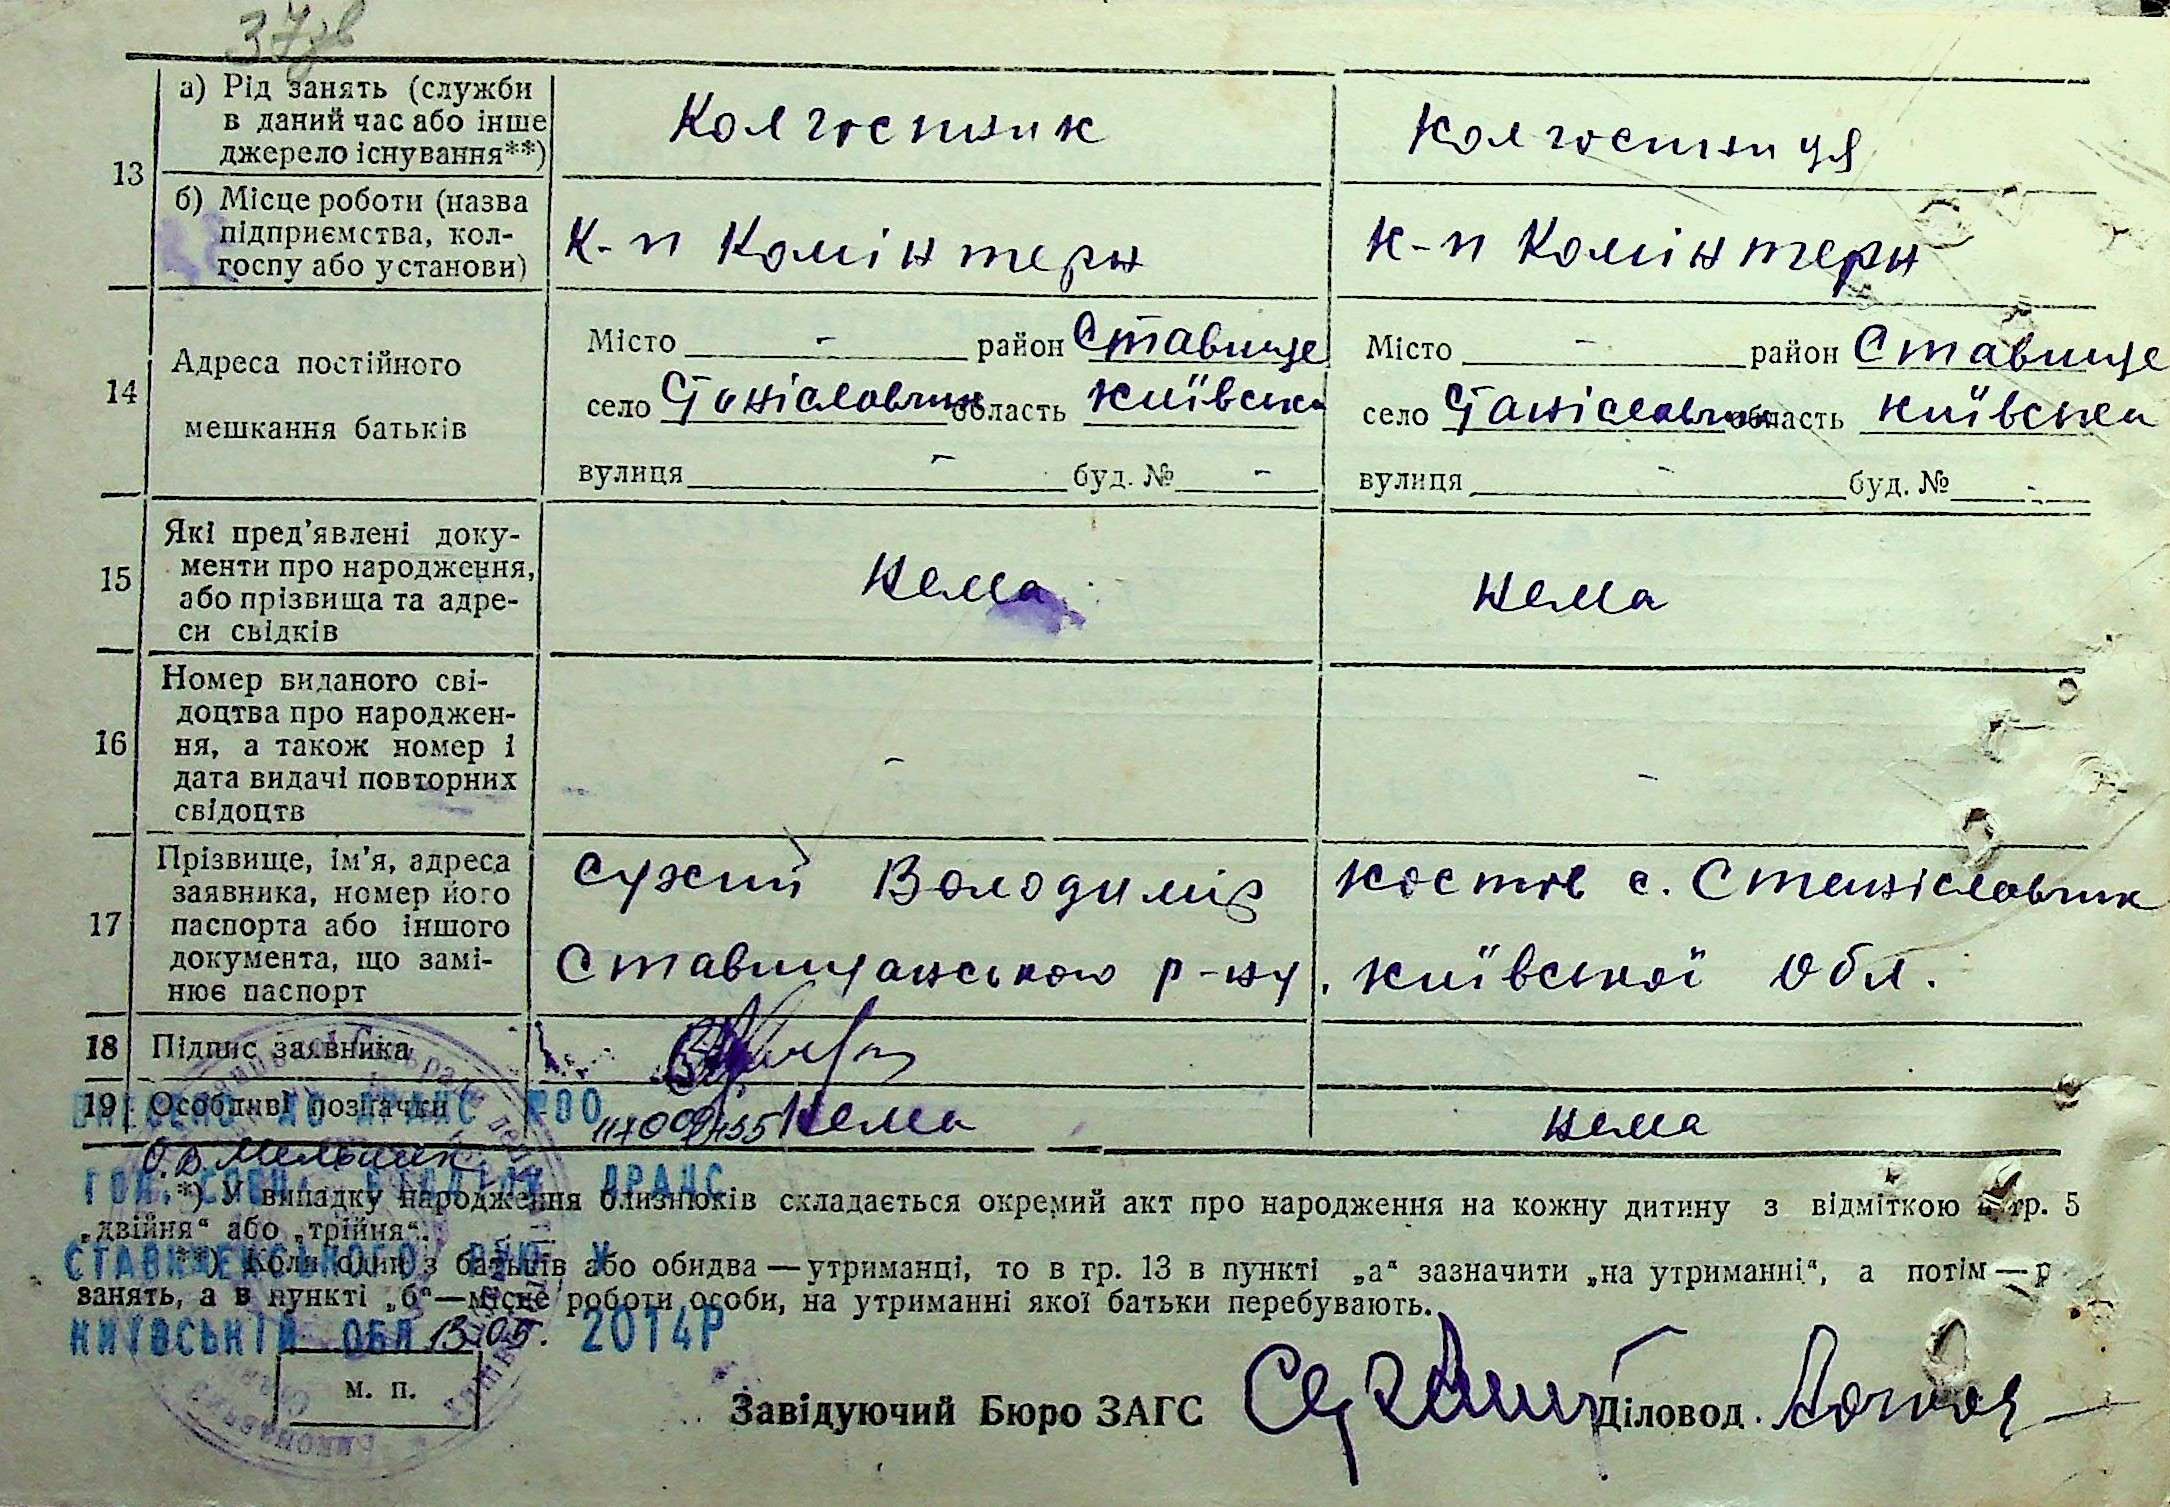 37зв
13
а) Рід занять (служби
в даний час або інше
джерело існування**)
Колгоспник
Колгоспниця
б) Місце роботи (назва
підприємства, кол-
госпу або установи)
К-п Комінтерн
К-п Комінтерн
14
Адреса постійного
мешкання батьків
Місто - район Ставище
село Станіславчик область Київська
вулиця - буд. № -
Місто - район Ставище
село Станіславчик область Київська
вулиця - буд. № -
15
Які пред'явлені доку-
менти про народження,
або прізвища та адре-
си свідків
Нема
Нема
16
Номер виданого сві-
доцтва про народжен-
ня, а також номер і
дата видачі повторних
свідоцтв
-
-
17
Прізвище, ім'я, адреса
заявника, номер його
паспорта або іншого
документа, що замі-
нює паспорт
Сухий Володимір Костов с. Станіславчик
Ставищанського р-ну, Київської обл.
18 Підпис заявника
19 Особливі позначки
Нема
Нема
ВНЕСЕНО ДО ДРАЦС
О.В. Мельник
ГОЛ. СПЕЦ. ВІДДІЛУ ДРАЦС
*) У випадку народження близнюків складається окремий акт про народження на кожну дитину з відміткою в гр. 5
„двійня“ або „трійня“.
СТАВИЩЕНСЬКОГО РУЮ У
**) Коли один з батьків або обидва — утриманці, то в гр. 13 в пункті „а“ зазначити „на утриманні“, а потім — р
занять, а в пункті „б“ — місце роботи особи, на утриманні якої батьки перебувають.
КИЇВСЬКІЙ ОБЛ 13.05. 2014Р
м. п.
Завідуючий Бюро ЗАГС
Діловод